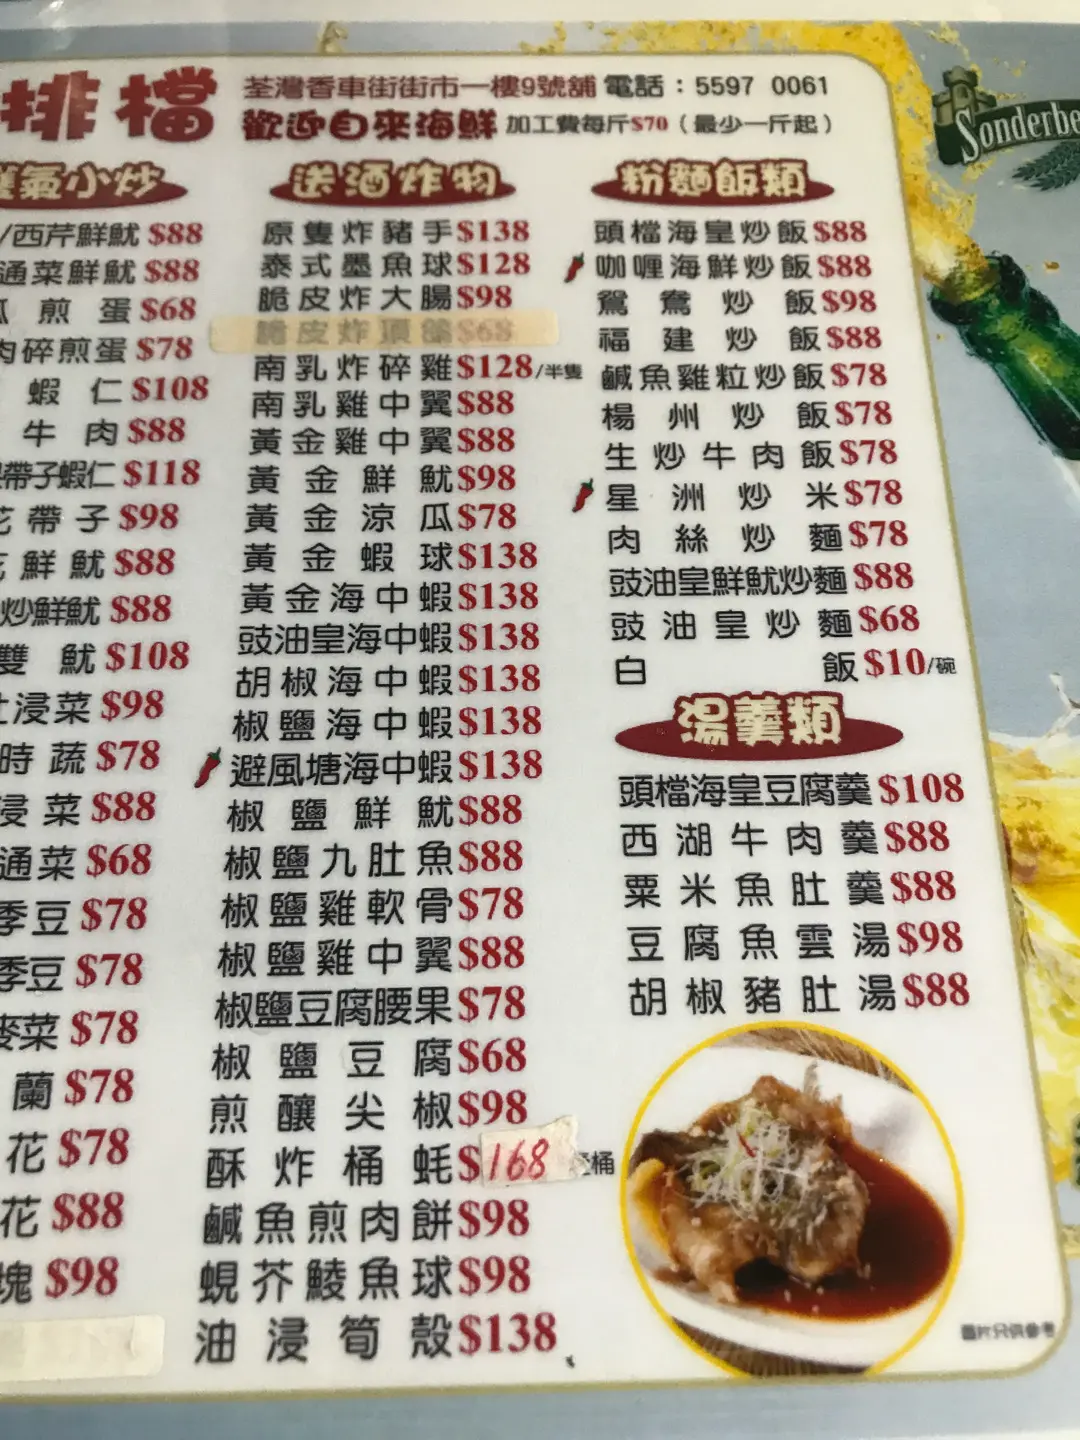 排檔
荃灣香車街街市一樓9號舖 電話：5597 0061
歡迎自來海鮮 加工費每斤$70（最少一斤起）
Sonderbe
氣小炒
/西芹鮮魷 $88
通菜鮮魷 $88
煎蛋 $68
肉碎煎蛋 $78
蝦仁 $108
牛肉 $88
帶子蝦仁 $118
花帶子 $98
鮮魷 $88
炒鮮魷 $88
雙魷 $108
浸菜 $98
時蔬 $78
浸菜 $88
通菜 $68
季豆 $78
季豆 $78
菜 $78
蘭 $78
花 $78
花 $88
塊 $98
送酒炸物
原隻炸豬手 $138
泰式墨魚球 $128
脆皮炸大腸 $98
脆皮炸頂鴿 $68
南乳炸碎雞 $128/半隻
南乳雞中翼 $88
黃金雞中翼 $88
黃金鮮魷 $98
黃金涼瓜 $78
黃金蝦球 $138
黃金海中蝦 $138
豉油皇海中蝦 $138
胡椒海中蝦 $138
椒鹽海中蝦 $138
避風塘海中蝦 $138
椒鹽鮮魷 $88
椒鹽九肚魚 $88
椒鹽雞軟骨 $78
椒鹽雞中翼 $88
椒鹽豆腐腰果 $78
椒鹽豆腐 $68
煎釀尖椒 $98
酥炸桶蚝 $168 桶
鹹魚煎肉餅 $98
蜆芥鯪魚球 $98
油浸筍殼 $138
粉麵飯類
頭檔海皇炒飯 $88
咖喱海鮮炒飯 $88
鴛鴦炒飯 $98
福建炒飯 $88
鹹魚雞粒炒飯 $78
楊州炒飯 $78
生炒牛肉飯 $78
星洲炒米 $78
肉絲炒麵 $78
豉油皇鮮魷炒麵 $88
豉油皇炒麵 $68
白飯 $10/碗
湯羹類
頭檔海皇豆腐羹 $108
西湖牛肉羹 $88
粟米魚肚羹 $88
豆腐魚雲湯 $98
胡椒豬肚湯 $88
圖片只供參考